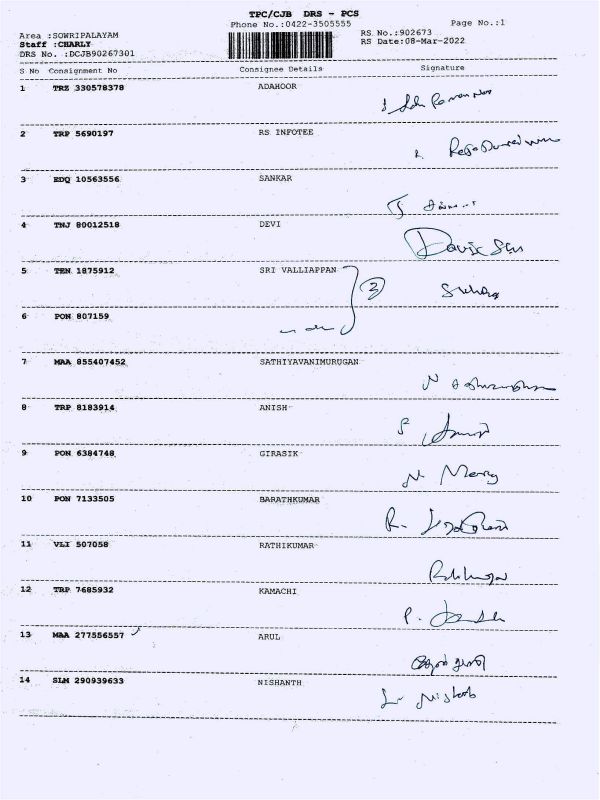 TPC/CJB DRS - PCS
Phone No.:0422-3505555
Page No.:1
Area :SOWRIPALAYAM
RS No.:902673
Staff :CHARLY
RS Date:08-Mar-2022
DRS No. :DCJB90267301
S No Consignment No Consignee Details Signature
1 TRZ 330578378 ADAHOOR
2 TRP 5690197 RS INFOTEE
3 EDQ 10563556 SANKAR
4 TNJ 80012518 DEVI
5 TEN 1875912 SRI VALLIAPPAN
3
6 PON 807159
7 MAA 855407452 SATHIYAVANIMURUGAN
8 TRP 8183914 ANISH
9 PON 6384748 GIRASIK
N. Mercy
10 PON 7133505 BARATHKUMAR
11 VLI 507058 RATHIKUMAR
12 TRP 7685932 KAMACHI
13 MAA 277556557 ARUL
14 SLM 290939633 NISHANTH